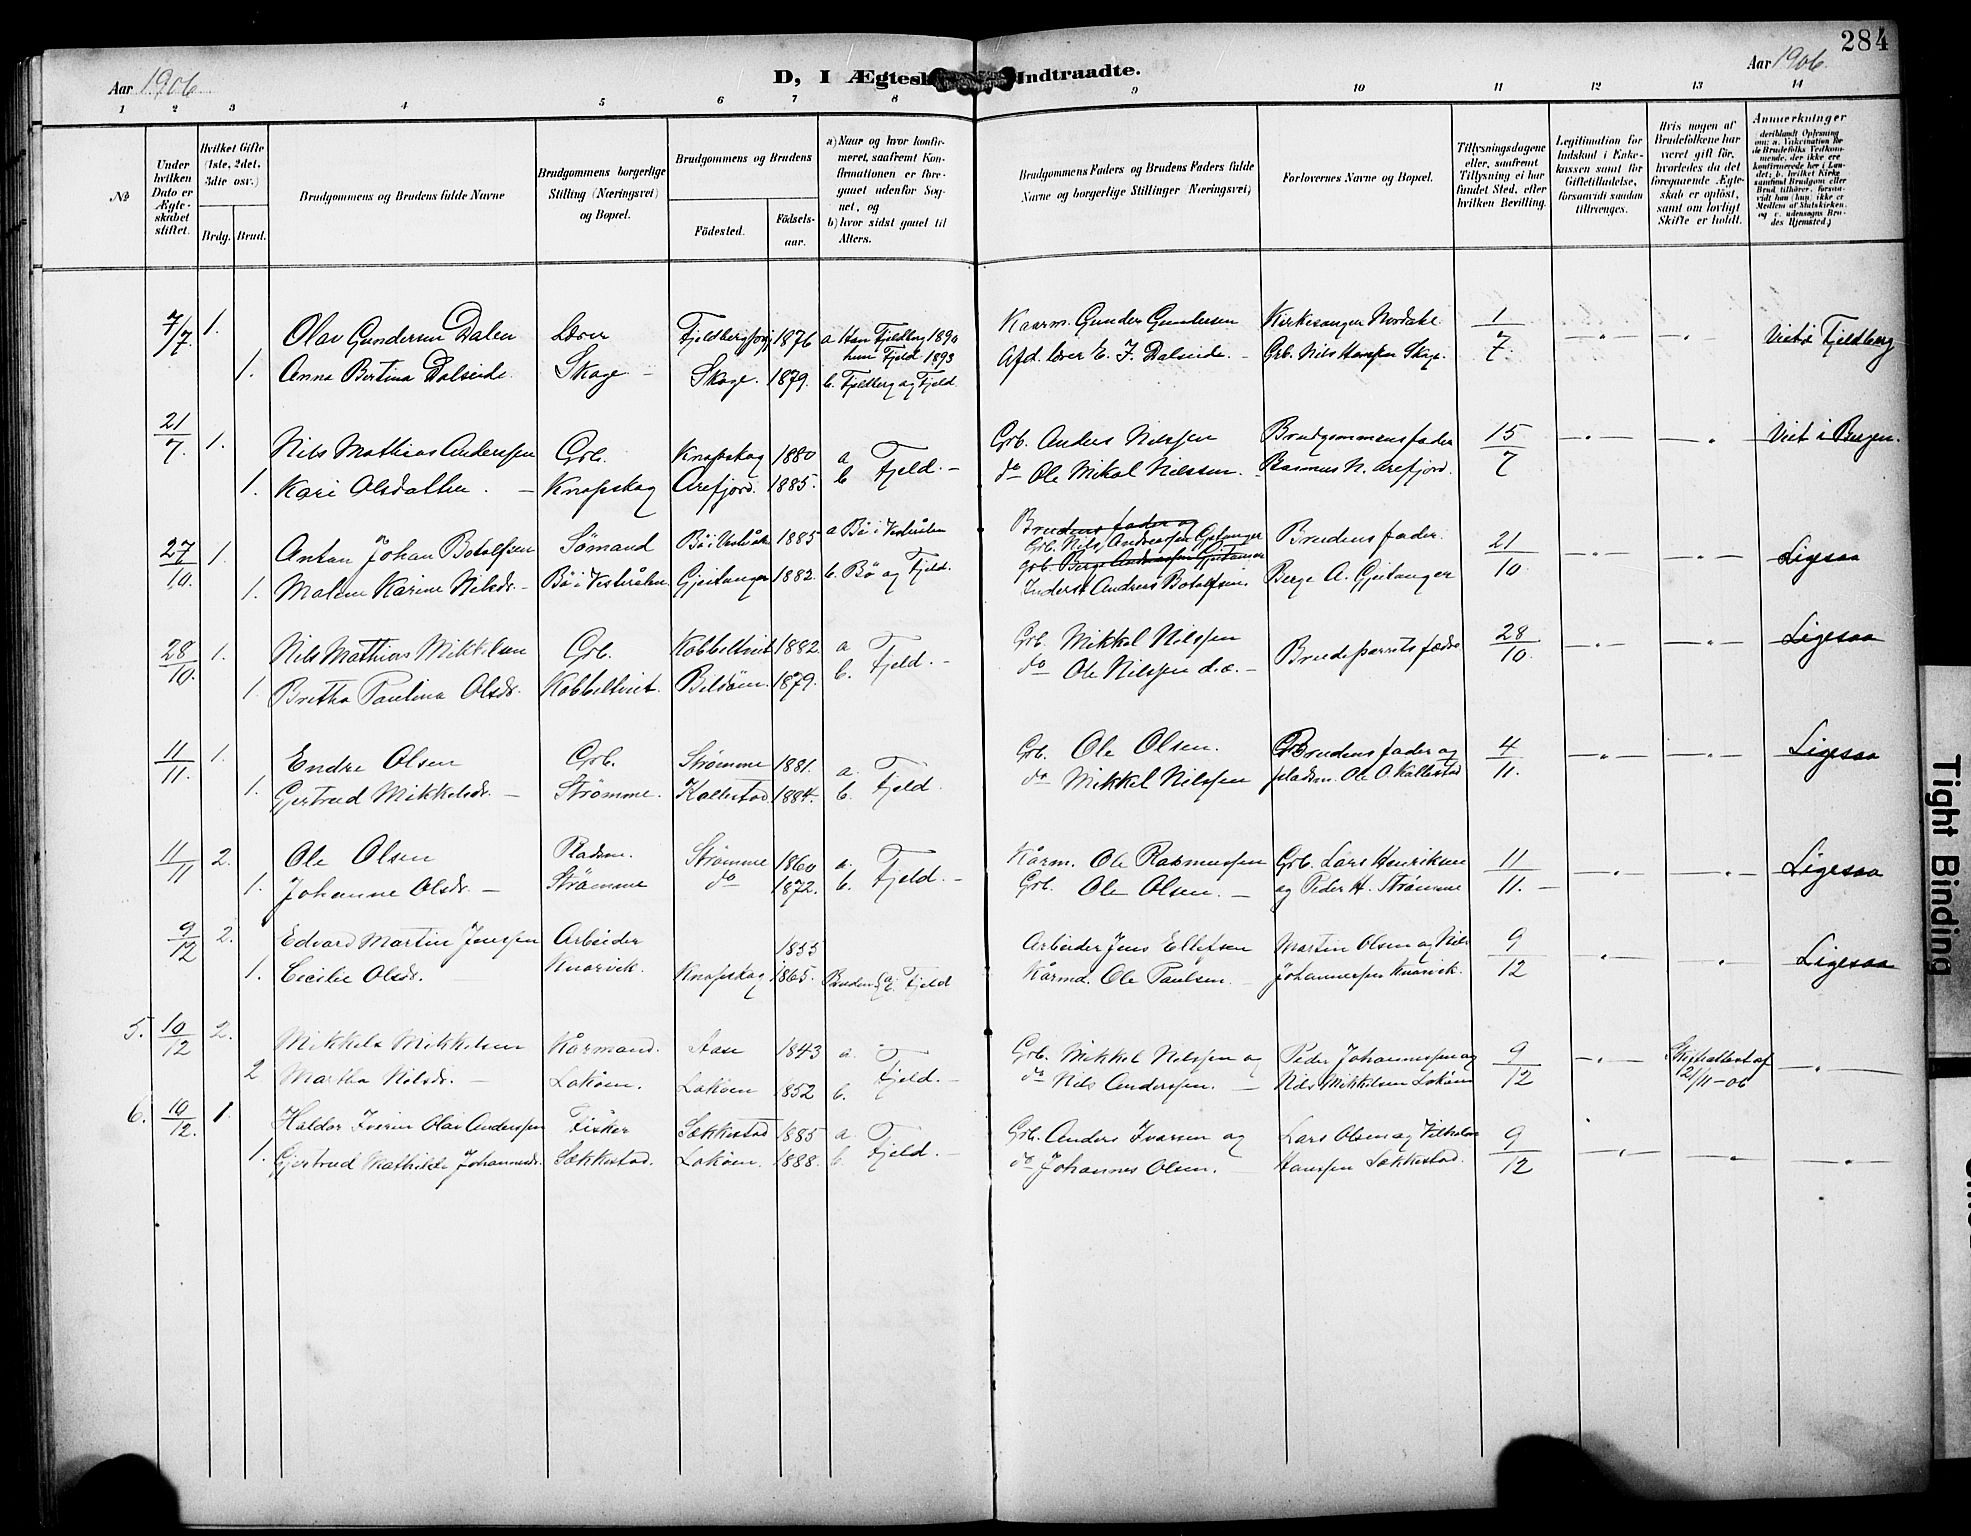 284
Aar 1906
D, I Ægtesk Indtraadte.
Aar 1906.
1 2 3 4 5 6 7 8 9 10 11 12 13 14
№
Under hvilken Dato er Ægteskabet stiftet.
Hvilket Gifte (1ste, 2det, 3die osv.)
Brdg. Brud.
Brudgommens og Brudens fulde Navne
Brudgommens borgerlige Stilling (Næringsvei) og Bopæl.
Brudgommens og Brudens
Fødested.
Fødselsaar.
a) Naar og hvor konfirmeret, saafremt Konfirmationen er foregaaet udenfor Sognet, og
b) hvor sidst gaaet til Alters.
Brudgommens Faders og Brudens Faders fulde Navne og borgerlige Stillinger Næringsvei)
Forlovernes Navne og Bopæl.
Tillysningsdagene eller, saafremt Tillysning ei har fundet Sted, efter hvilken Bevilling.
Legitimation for Indskud i Enkekassen samt for Giftetilladelse, forsaavidt saadan tiltrænges.
Hvis nogen af Brudefolkene har været gift før, hvorledes da det foregaaende Ægteskab er opløst, samt om lovligt Skifte er holdt.
Anmerkninger
(deriblandt Oplysning om: a. Vakcination for de Brudefolks Vedkommende, der ikke ere konfirmerede her i Landet; b. hvilket Kirkesamfund Brudgom eller Brud tilhører, forsaavidt han (hun) ikke er Medlem af Statskirken, og c. udensogns Brudes Hjemsted.)
7/7 1. Olav Gundersen Dalen Lærer 1876 a Han Fjeldberg 1890 Kaarm. Gunder Gundersen Kirkesanger Nordahl 1/7 Viet i Fjeldberg
hun Fjeld 1893
1. Anna Bertina Dalseide. Skoge – Skoge. 1879. b. Fjelberg og Fjeld. Afd. lærer E. J. Dalseide. – Grb. Nils Hanssen Skoge.
21/7. 1. Nils Mathias Anderssen Grb. Knapskog 1880 a Fjeld. – Grb. Anders Nilssen Brudgommens fader 15/7 Viet i Bergen.
1. Kari Olsdatter. – Knapskog Arefjord. 1885. b do Ole Mikal Nilssen. Rasmus N. Arefjord.
27/10. 1. Antan Johan Botolfsen Sømand Bø i Vesterålen 1885 a Bø i Vesterålen Brudens fader og Brudens fader. 21/10 Ligesaa
Grb. Nils Andreassen Gjetanger
Grb. Berge Andreassen Gjetanger
1. Malene Karine Nilsdr. – Bø i Vesterålen Gjeitanger 1882. b. Bø og Fjeld. Inderst Andreas Botolfsen. Berge A. Gjeitanger
28/10. 1. Nils Mathias Mikkelsen Grb. Kobbeltveit 1882 a Fjeld. – Grb. Mikkel Nilssen Brudeparrets fædre 28/10. Ligesaa
1. Bretha Paulina Olsdr. Kobbeltveit. Bildøen. 1879. b. do Ole Nilssen d.æ. –
11/11. 1. Endre Olsen Grb. Strømme 1881. a. Fjeld. Grb. Ole Olsen. Brudens fader og 4/11. Ligesaa
1. Gjertrud Mikkelsdr. – Strømme. Kallestad 1884. b. do Mikkel Nilssen pladsm. Ole O. Kallestad
11/11 2. Ole Olsen Pladsm. Strømme 1860 a. Fjeld. – Kårm. Ole Rasmussen Grb. Lars Henriksen 11/11. – Ligesaa
1. Johanne Olsdr. – Strømme do 1872. b. Grb. Ole Olsen. – og Peder H. Strømme
9/12 2. Edvard Martin Jenssen Arbeider 1855 Arbeider Jens Ellefsen Martin Olsen og Nils 9/12 Ligesaa
1. Cecilie Olsdr. Knarvik. Knapskog 1865. Bruden a b. Fjeld Kårmd. Ole Paulsen. – Johannessen Knarvik.
5. 10/12 2. Mikkel Mikkelsen Kårmand. Aase 1843 a. Fjeld. – Grb. Mikkel Nilssen og Peder Johannessen og 9/12 Skifteattest af
2 Martha Nilsdr. – Lokøen. Lokøen 1852 b. do Nils Anderssen. – Nils Mikkelsen Lokøen 21/11–06
6. 10/12. 1. Haldor Iverin Olai Anderssen Fisker Sækkestad 1885 a. Fjeld. – Grb. Anders Ivarsen og Lars Olsen og Vilhelm 9/12
1. Gjertrud Mathilde Johannesdr. Sækkestad. Lokøen. 1888. b. do Johannes Olsen. Hanssen Sækkestad.
Tight Binding